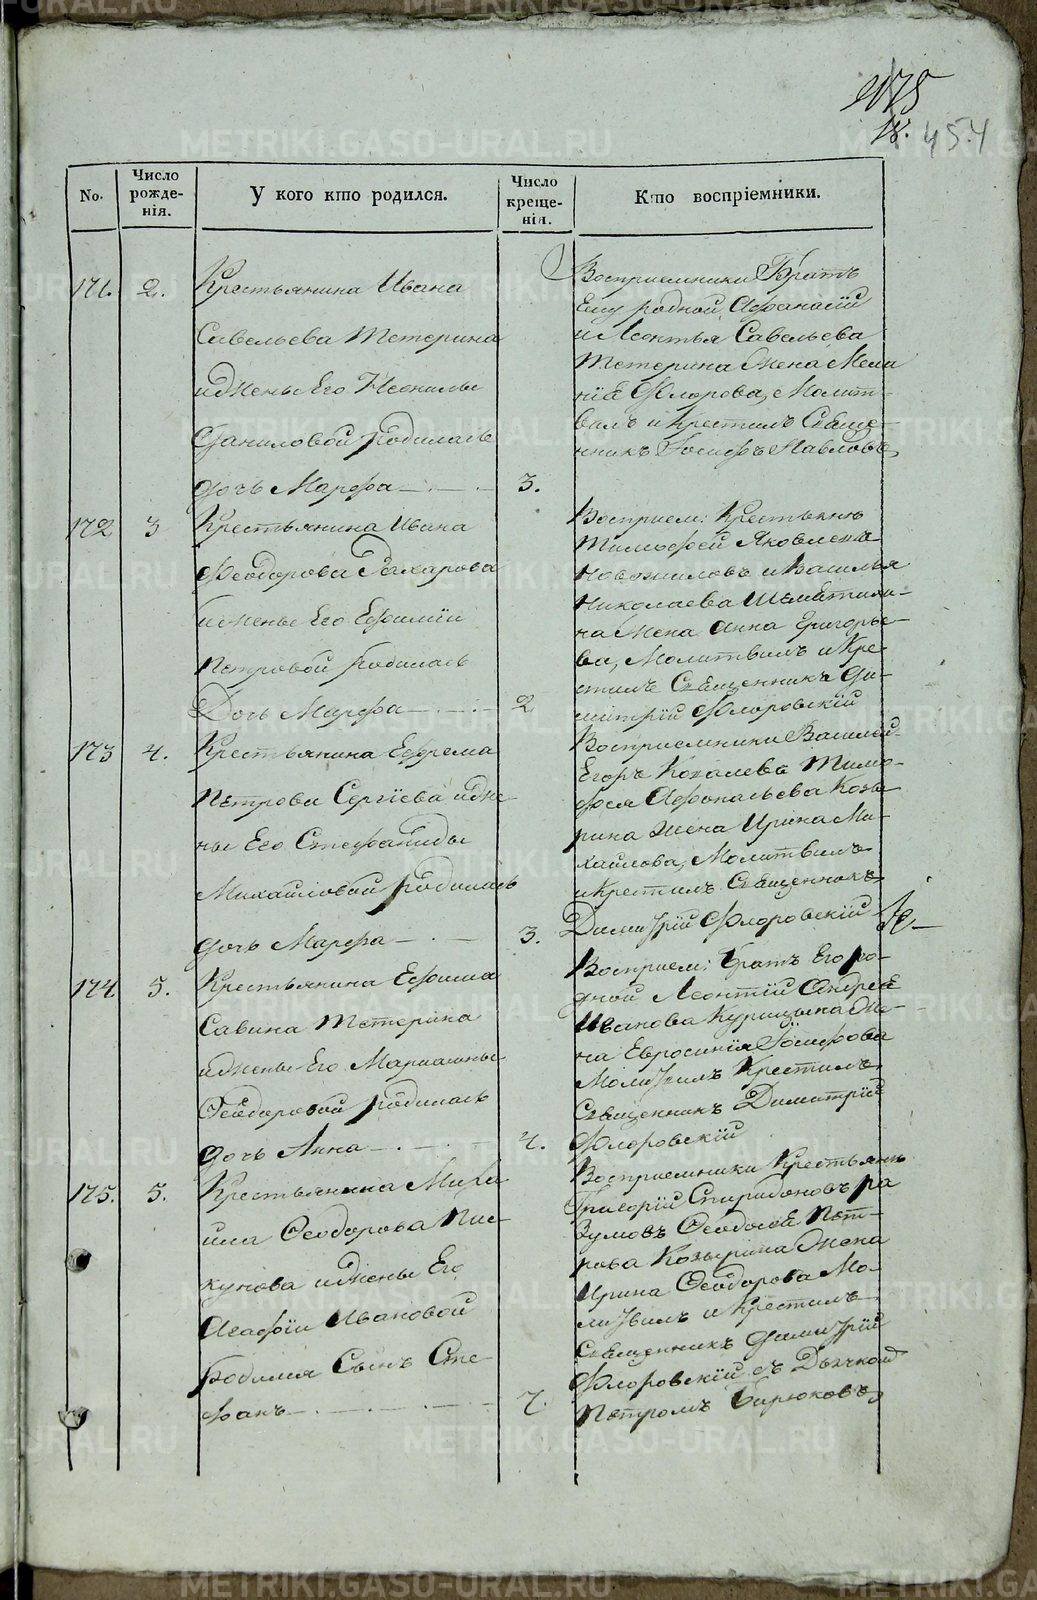 175
18. 454
No.
Число рожде-нія.
У кого кто родился.
Число креще-нія.
Кто воспріемники.
171. 2. Крестьянина Ивана
Савельева Тетерина
и жены Его Неонилы
Даниловой родилась
дочь Марфа 3.
Восприемники Братъ
Ему родной Афанасій
и Леонтья Савельева
Тетерина Жена Мела
нія Флорова, Молит-
вилъ и Крестилъ Свяще-
нникъ Іосифъ Павловъ
172 3 Крестьянина Ивана
Феодорова Захарова
и жены Его Ефимии
Петровой родилась
Дочь Марфа 2
Восприем: Крестьянъ
Тимофей Яковлева
Новожиловъ и Василья
Николаева
на Жена Анна Григорье-
ва, Молитвилъ и Кре-
стилъ Священникъ Ди-
митрій Флоровскій
173 4. Крестьянина Ефрема
Петрова Сергіева и же
ны Его Стефаниды
Михайловой родилась
дочь Марфа 3.
Восприемники Василій
Егоръ Ковалева Тимо-
фея Афонасьева Козы
рина жена Ирина Ми-
хайлова, Молитвилъ
и Крестилъ Священникъ
Димитрій Флоровскій
174 5. Крестьянина Ефима
Савина Тетерина
и жены Его Мариамны
Феодоровой родилась
дочь Анна 4.
Восприем: братъ Его ро-
дной Леонтій Андрея
Иванова Курицына Же-
на Евросинія Іосифова
Молитвилъ Крестилъ
Священникъ Димитрій
Флоровскій
175. 5. Крестьянина Миха
ила Феодорова Пис-
кунова и жены Его
Агафіи Ивановой
Родился Сынъ Сте-
фанъ 7.
Восприемники Крестьянъ
Григорій Спиридоновъ Ра
зумовъ Феодосея Пет-
рова Козырина Жена
Ирина Феодорова Мо-
литвилъ и Крестилъ
Священникъ Димитрій
Флоровскій съ Дьячкомъ
Петромъ Бирюковъ
METRIKI.GASO-URAL.RU